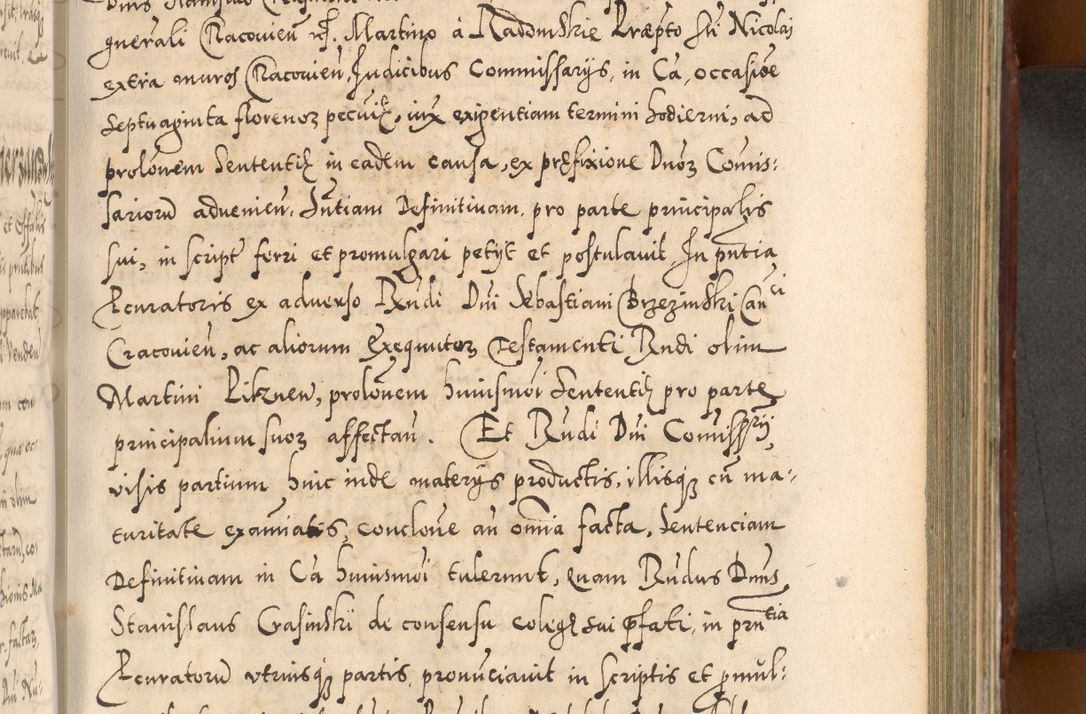 gnerali Cracovien̄ et Martino à Radomskie Præpto S̄ti Nicolai
extra muros Cracovien̄, Judicibus Commissarijs, in Ca, occasioe
septuaginta florenoꝝ pecuiꝫ, iux exigentiam termini hodierni, ad
prolōnem Sententiꝫ in eadem causa, ex prefixione Dnoꝝ Comis:
sariorū advenien̄. Sn̄tiam Definitivam, pro parte principalis
sui, in script̄ ferri et promulgari petijt et postulavit. In pn̄tia
Pcuratoris ex adverso Rn̄di Dni Sebastiani Brzezinski Can̄ci
Cracovien̄, ac aliorum Exequutoꝝ Testamenti Rn̄di olim
Martini Piknew, prolōnem huiusmōi Sententiꝫ pro parte
principalium suoꝝ affectan̄. Et Rn̄di Dni Comissrij,
visis partium hinc inde materijs productis, illisqꝫ cū ma-
turitate examiatis, conclōne an̄ omīa facta, Sentenciam
Definitivam in Ca huiusmōi tulerunt, quam Rn̄dus Dnus
Stanislaus Crasinski de consensu colegꝫ sui pfati, in prn̄tia
Pcuratorū utriusqꝫ partis, pronūciavit in scriptis et pmūl: